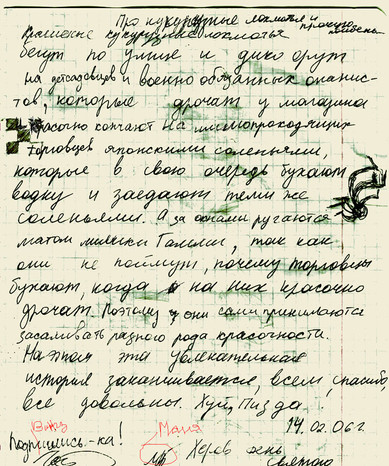 Про кукурузные лохмотья и
прочие
кукурузные лохмотья
бегут по улице и дико орут
на детсадовцев и военно обязанных онанис-
тов, которые дрочат у магазина
красочно кончают на мимопроходящих
торговцев японскими соленьями,
которые в свою очередь бухают
водку и заедают теми же
соленьями. А за окнами ругаются
матом Гальми, так как
они не поймут, почему торговцы
бухают, когда на них красочно
дрочат. Поэтому они сами принимаются
засаливать разного рода красочности.
На этом эта увлекательная
история заканчивается, всем спасибо,
все довольны. Хуй, Пизда.
14.02.06г.
Подпишись-ка!
Маня
Херов день
святого